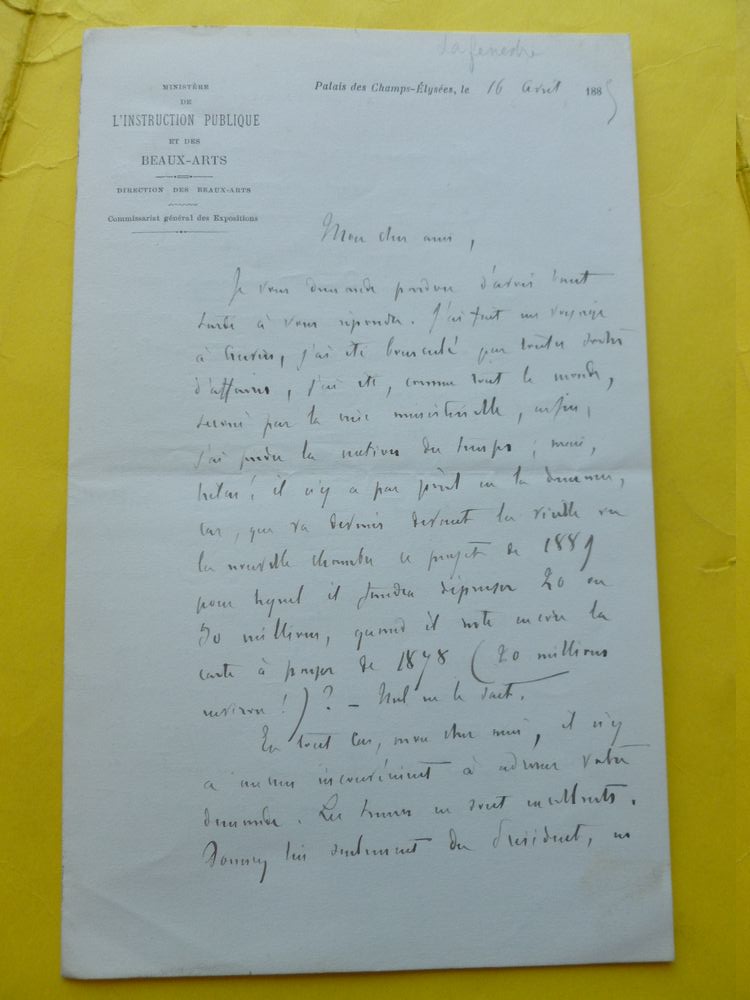 Lafenestre
MINISTÈRE
DE
L'INSTRUCTION PUBLIQUE
ET DES
BEAUX-ARTS
DIRECTION DES BEAUX-ARTS
Commissariat général des Expositions
Palais des Champs-Élysées, le 16 avril 1885
Mon cher ami,
Je vous demande pardon d'avoir tant
tardé à vous répondre. J'ai fait un voyage
à Anvers, j'ai été bousculé par toutes sortes
d'affaires, j'ai été, comme tout le monde,
secoué par la crise ministérielle, enfin,
j'ai perdu la notion du temps ; mais,
hélas ! il n'y a pas péril en la demeure,
car, que va devenir devant la vieille ou
la nouvelle chambre ce projet de 1889
pour lequel il faudra dépenser 20 ou
30 millions, quand il reste encore la
carte à payer de 1878 (20 millions
environ !) ? — Nul ne le sait.
En tout cas, mon cher ami, il n'y
a aucun inconvénient à adresser votre
demande. Les termes en sont excellents.
Donnez lui seulement du Président, ou